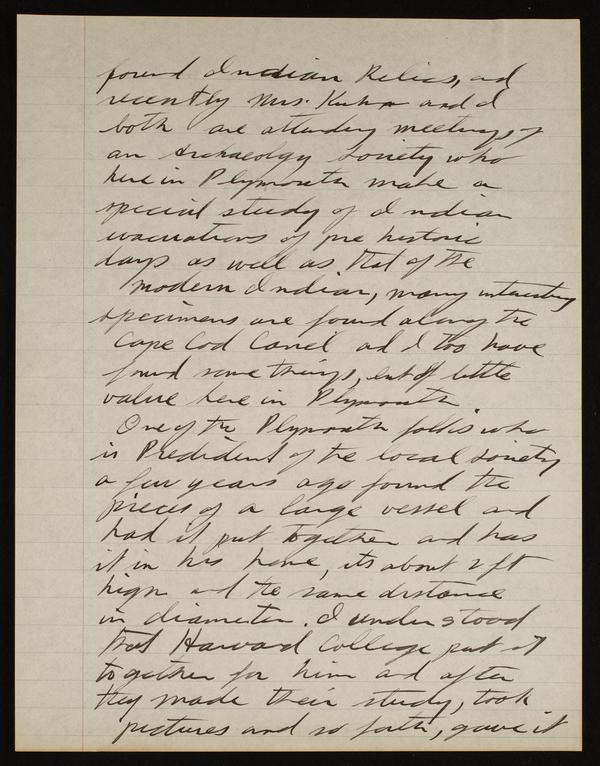 found Indian Relics, and
recently Mrs. Kuhn and I
both are attending meetings of
an Archaeolgy Society who
here in Plymouth make a
special study of Indian
evacuations of pre historic
days as well as that of the
modern Indian, many interesting
specimens are found along the
Cape Cod Canel and I too have
found some things, but of little
value here in Plymouth
One of the Plymouth folks who
is Predident of the local society
a few years ago found the
pieces of a large vessel and
had it put together and has
it in his home, its about 2 ft
high and the same distance
in diameter. I understood
that Harvard College put it
together for him and after
they made their study, took
pictures and so forth, gave it